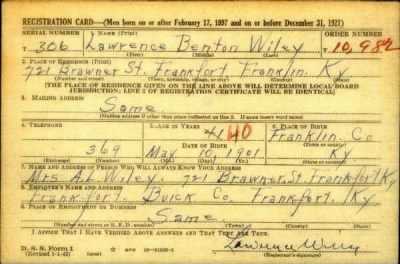 REGISTRATION CARD—(Men born on or after February 17, 1897 and on or before December 31, 1921)
SERIAL NUMBER 1. NAME (Print) ORDER NUMBER
T 306 Lawrence Benton Wiley T 10,982
(First) (Middle) (Last)
2. PLACE OF RESIDENCE (Print)
721 Brawner St. Frankfort Franklin Ky
(Number and street) (Town, township, village, or city) (County) (State)
(THE PLACE OF RESIDENCE GIVEN ON THE LINE ABOVE WILL DETERMINE LOCAL BOARD
JURISDICTION; LINE 2 OF REGISTRATION CERTIFICATE WILL BE IDENTICAL)
3. MAILING ADDRESS
Same
(Mailing address if other than place indicated on line 2. If same insert word same)
4. TELEPHONE 5. AGE IN YEARS 6. PLACE OF BIRTH
41 40 Franklin Co
DATE OF BIRTH (Town or county)
369 May 10, 1901 Ky.
(Exchange) (Number) (Mo.) (Day) (Yr.) (State or country)
7. NAME AND ADDRESS OF PERSON WHO WILL ALWAYS KNOW YOUR ADDRESS
Mrs A.L. Wiley. 721 Brawner St. Frankfort Ky
8. EMPLOYER'S NAME AND ADDRESS
Frankfort. Buick Co. Frankfort. Ky
9. PLACE OF EMPLOYMENT OR BUSINESS
Same
(Number and street or R. F. D. number) (Town) (County) (State)
I AFFIRM THAT I HAVE VERIFIED ABOVE ANSWERS AND THAT THEY ARE TRUE.
D. S. S. Form 1
(Revised 1-1-42) GPO 16—21630-2 Lawrence Wiley